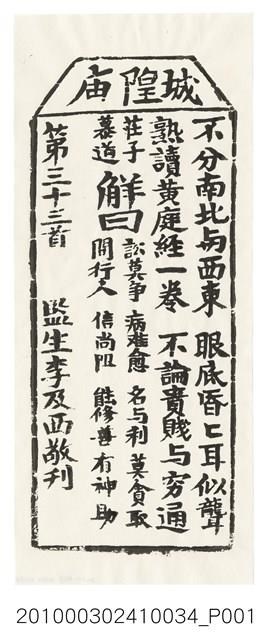 城隍庙
不分南北与西東　眼底昏〻耳似聾
熟讀黄庭經一卷　不論貴賤与穷通
莊子慕道
解曰
訟莫争　病难愈　名与利　莫貪取
問行人　信尚阻　能修善　有神助
第三十三首　監生李及西敬刋
201000302410034_P001